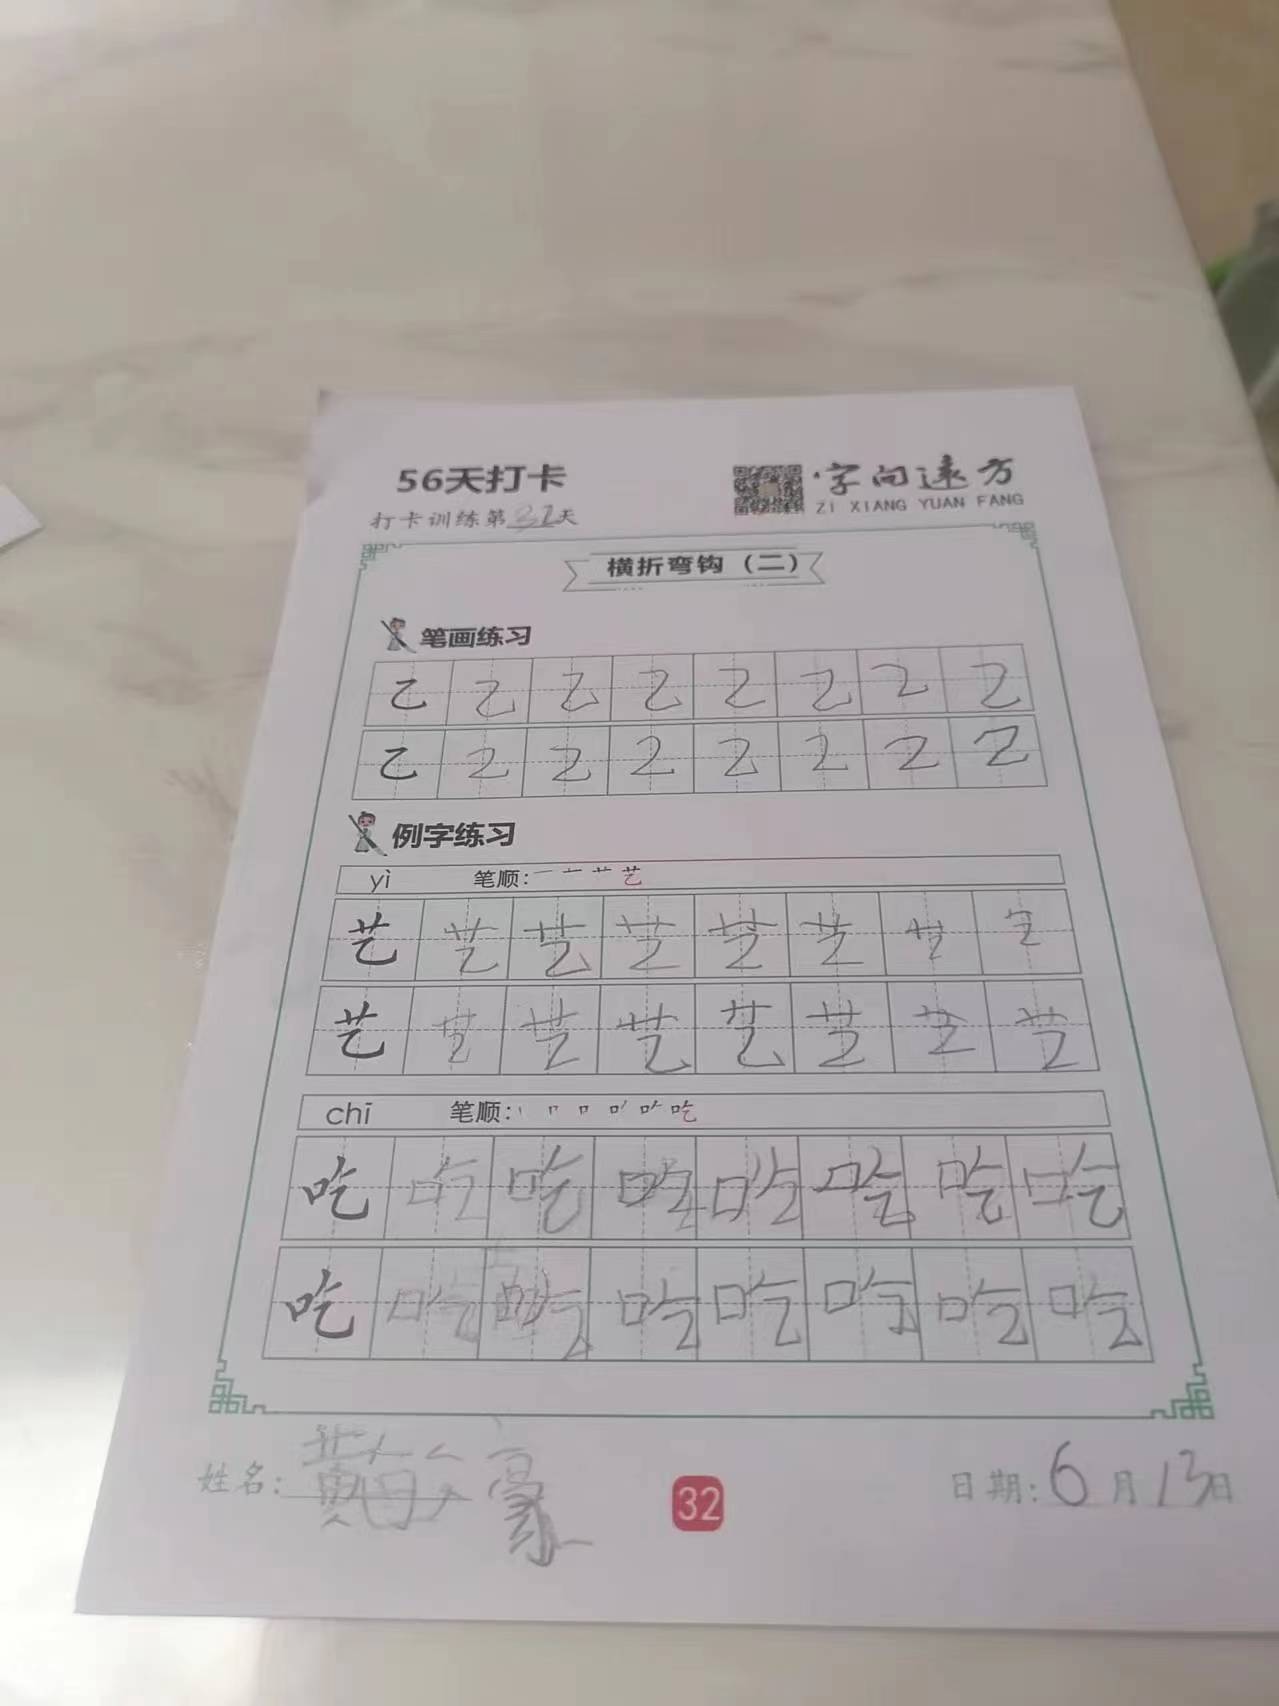 56天打卡
字向远方
打卡训练第32天
ZI XIANG YUAN FANG
横折弯钩（二）
笔画练习
乙乙乙乙乙乙乙乙
乙乙乙乙乙乙乙乙
例字练习
yì 笔顺：艺
艺艺艺艺艺艺艺艺
艺艺艺艺艺艺艺艺
chī 笔顺：吃
吃吃吃吃吃吃吃吃
吃吃吃吃吃吃吃吃
姓名：黄 豪
32
日期：6月13日